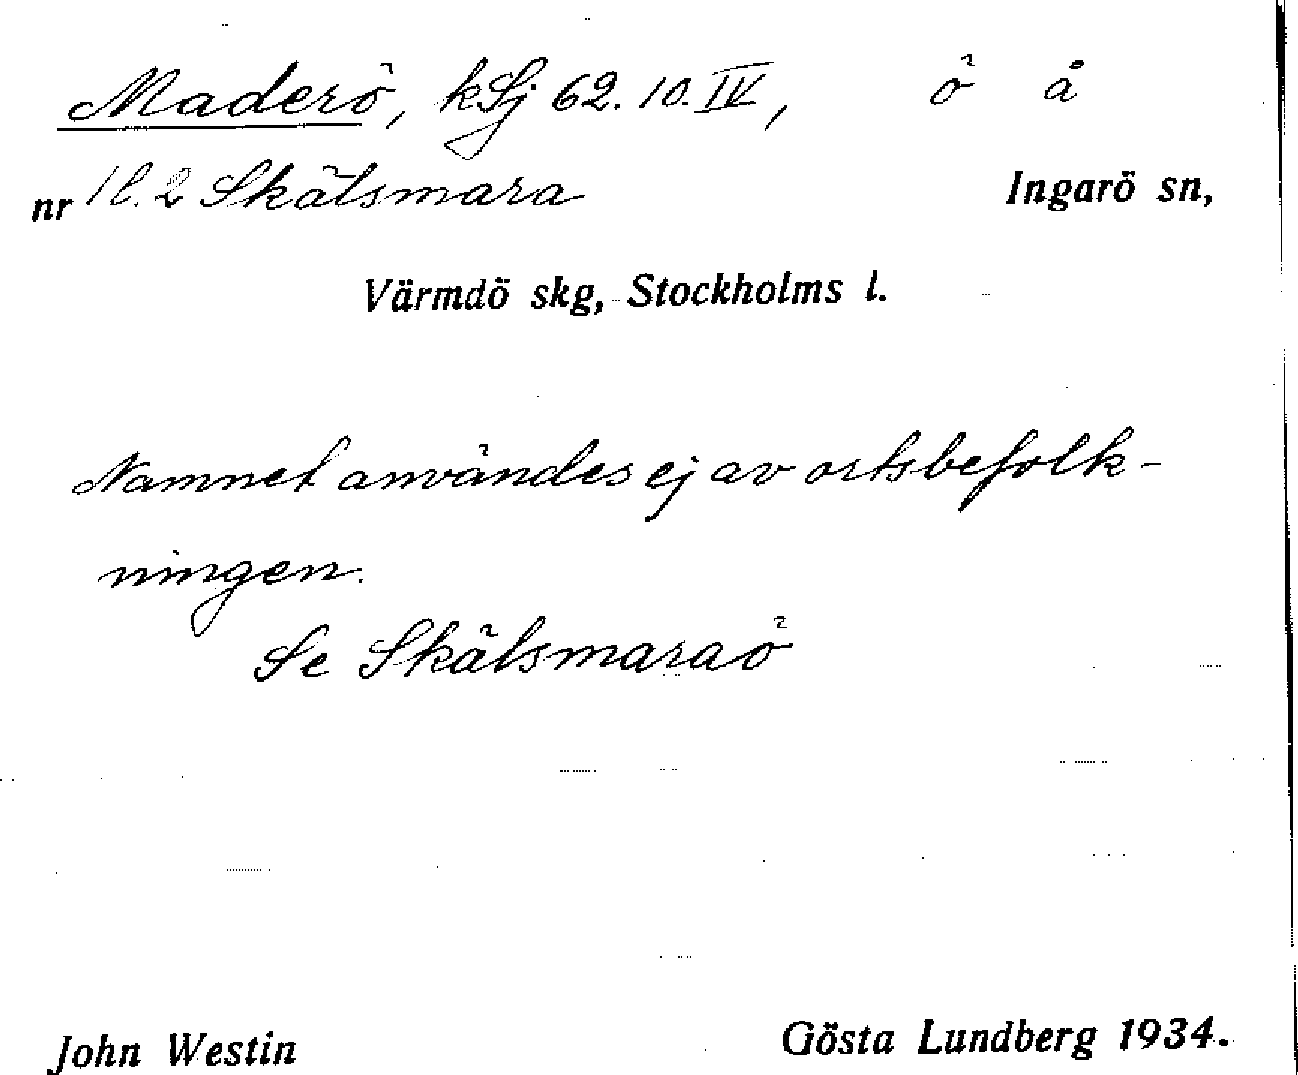 Maderö, kSj 62. 10. IV, ö å
nr 1 l. 2 Skälsmara Ingarö sn,
Värmdö skg, Stockholms l.
Namnet användes ej av ortsbefolk-
ningen.
Se Skälsmaraö
John Westin Gösta Lundberg 1934.